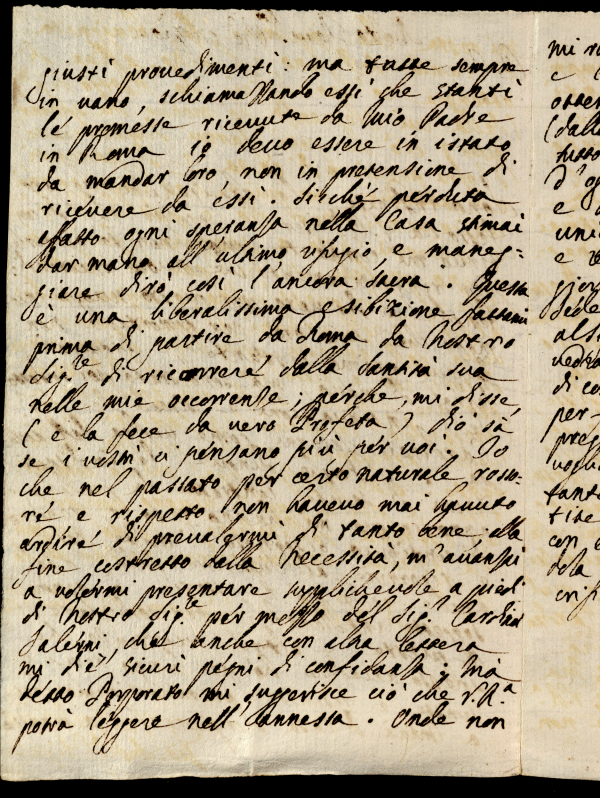 giusti provedimenti: ma tutte sempre
in vano, schiamazzando essi che stanti
le promesse ricevute da mio Padre
in Roma io devo essere in istato
da mandar loro non in pretensione di
ricevere da essi. Sicché perduta
affatto ogni speranza nella Casa stimai
dar mano all'ultimo rifugio, e maneg=
giare dirò così l'ancora sacra. Questa
è una liberalissima esibizione fattami
prima di partire da Roma da Nostro
Sig.re di ricorrere dalla Santità sua
nelle mie occorrenze; perche, mi disse,
(e la fece da vero Profeta) Dio sà
se i vostri ci pensano più per voi. Io
che nel passato per certo naturale rosso=
re e rispetto non havevo mai havuto
ardire di prevalermi di tanto bene, alla
fine costretto dalla necessità, m'avanzai
a volermi presentare supplichevole a piedi
di Nostro Sig.re per mezzo del Sig.r Cardinal
Salerni, che anche con altra lettera
mi diè sicuri pegni di confidanza; mà
detto Porporato mi suggerisce ciò che V.R.a
potrà leggere nell'annessa. Onde non
mi
e
(dalla
tutto
d'og
e
uni
e
di co
per
tanto
con